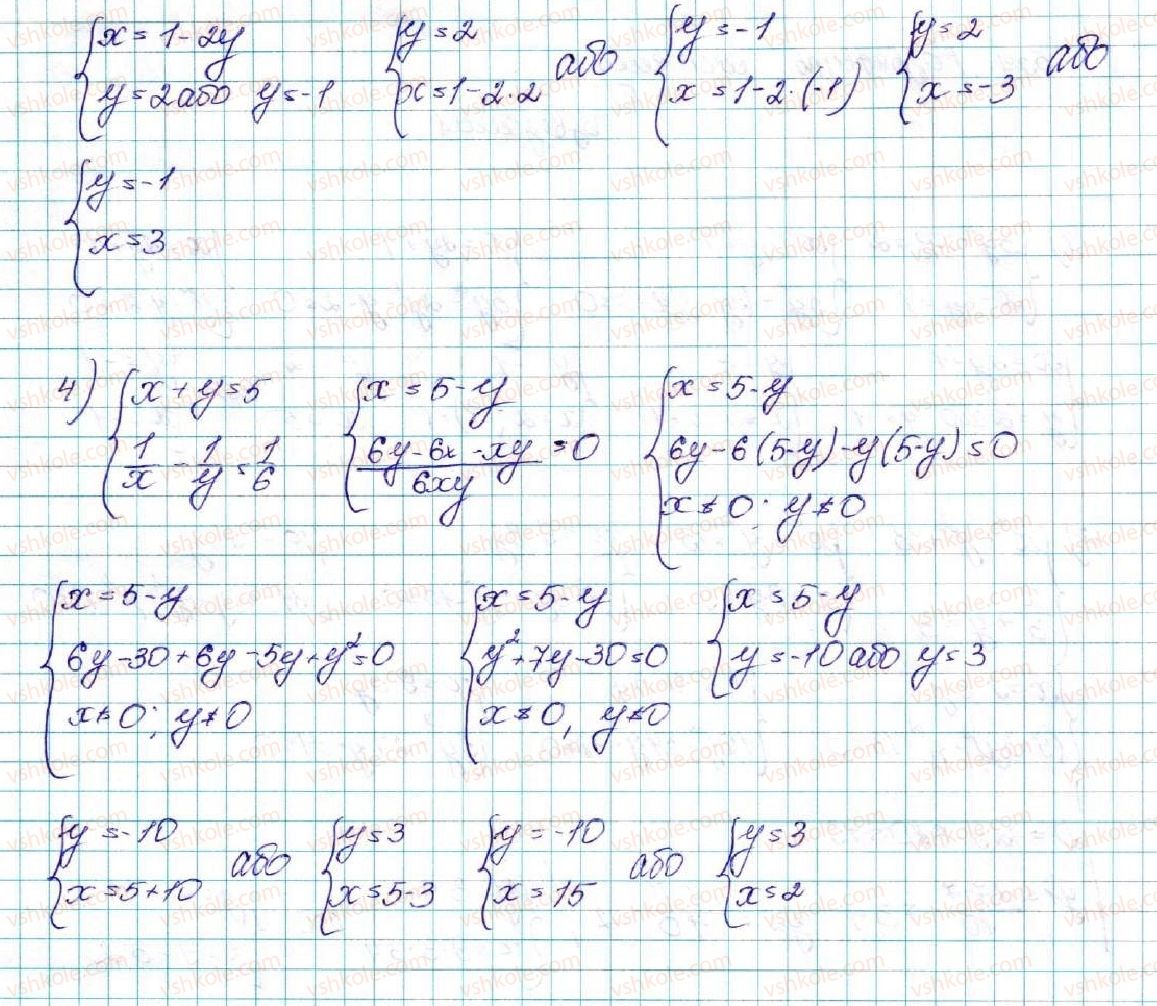 x = 1 - 2y
y = 2 або y = -1
y = 2
x = 1 - 2·2
або
y = -1
x = 1 - 2·(-1)
y = 2
x = -3
або
y = -1
x = 3
4) x + y = 5
1/x - 1/y = 1/6
x = 5 - y
(6y - 6x - xy)/6xy = 0
x = 5 - y
6y - 6(5-y) - y(5-y) = 0
x ≠ 0; y ≠ 0
x = 5 - y
6y - 30 + 6y - 5y + y² = 0
x ≠ 0; y ≠ 0
x = 5 - y
y² + 7y - 30 = 0
x ≠ 0, y ≠ 0
x = 5 - y
y = -10 або y = 3
y = -10
x = 5 + 10
або
y = 3
x = 5 - 3
y = -10
x = 15
або
y = 3
x = 2
vshkole.com